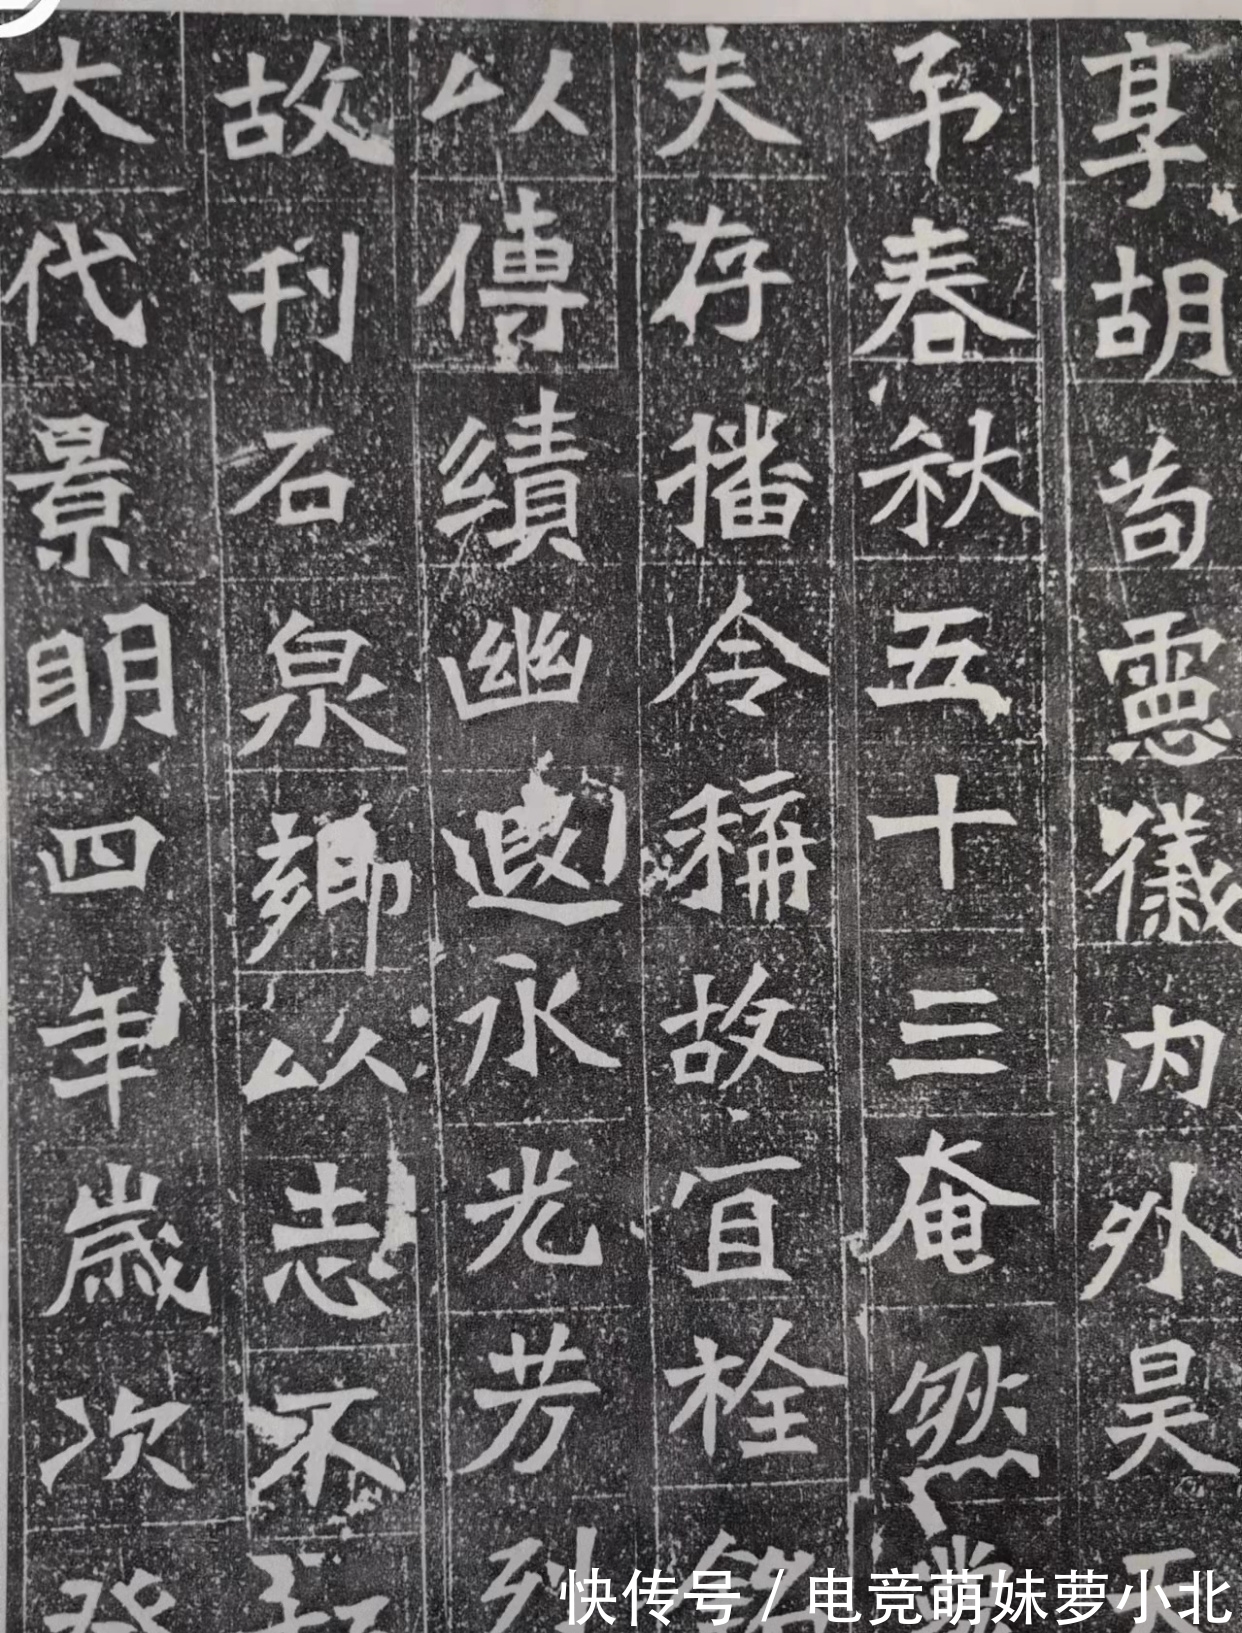 享胡苟靈徽內外昊天
弔春秋五十三奄然薨
夫存播令稱故宜栓銘
以傳績幽遐永光芳列
故刊石泉鄉以志不
大代景明四年歲次癸
快传号 / 电竞萌妹萝小北